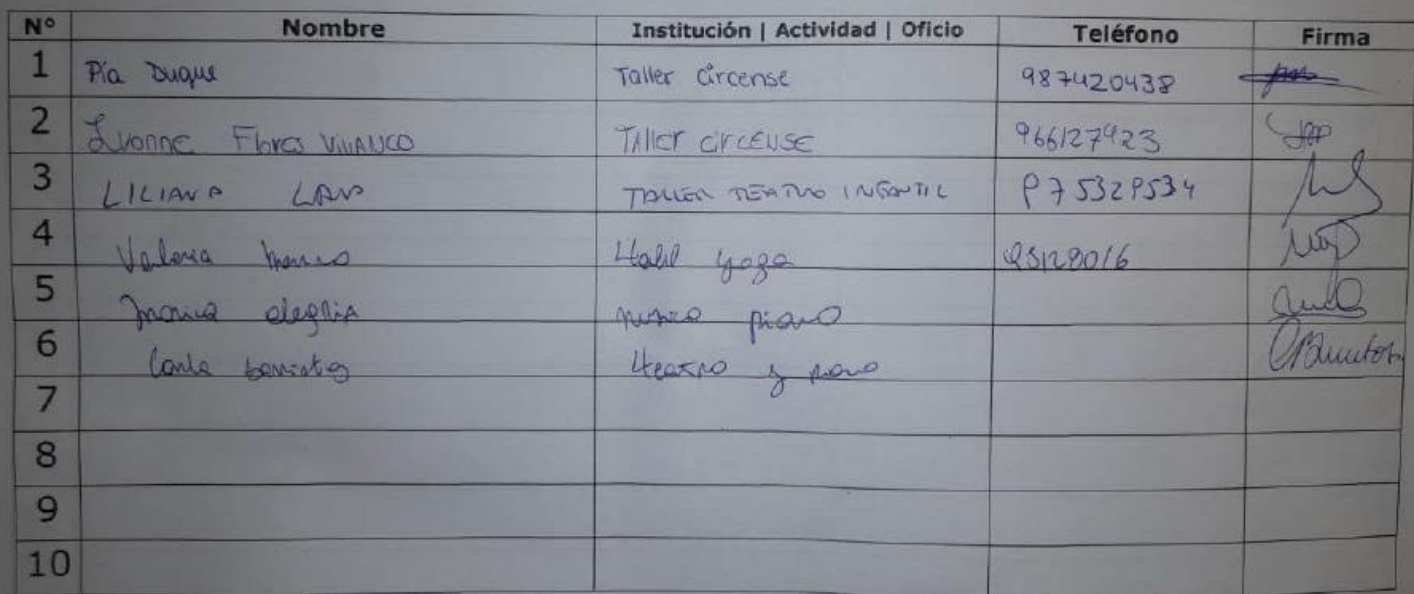 Nº Nombre Institución | Actividad | Oficio Teléfono Firma
1 Pía Duque Taller Circense 987420438
2 Ivonne Flores Vivanco Taller circense 966127423
3 LILIANA TALLER TEATRO INFANTIL 975329534
4 Valeria yoga
5 Monica alegria piano
6 Carla barrientos teatro y piano
7
8
9
10